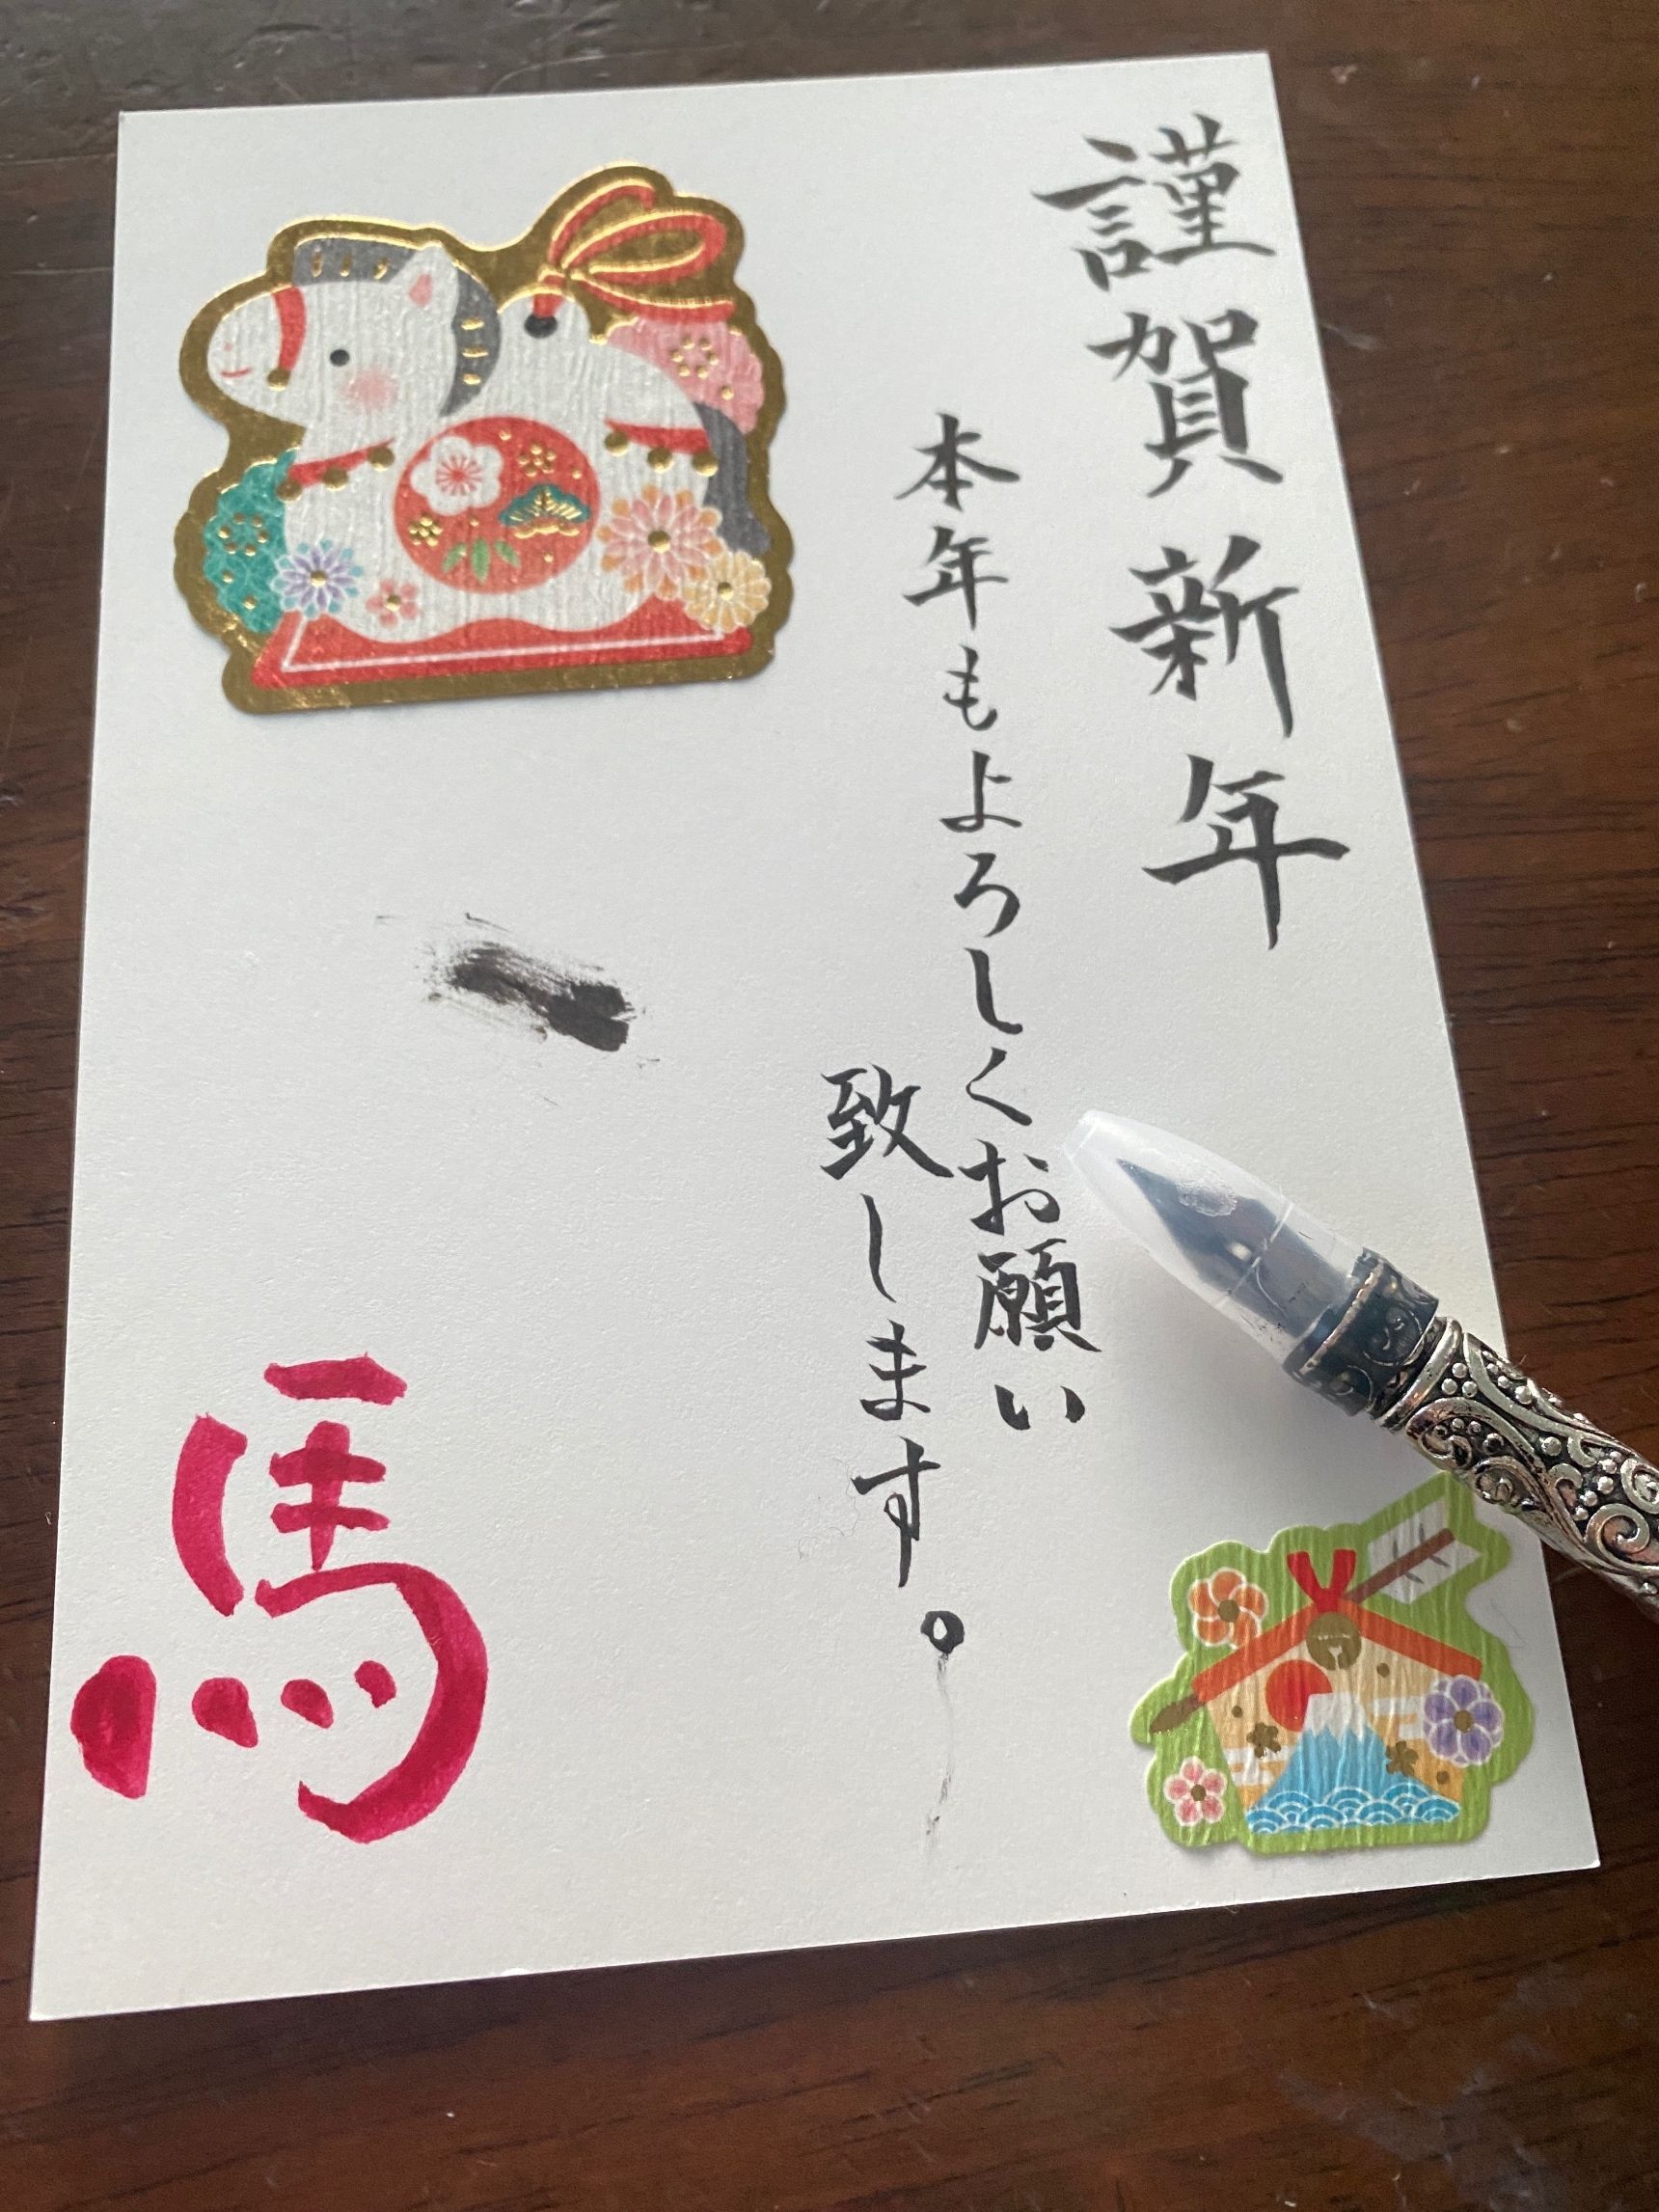 謹賀新年
本年もよろしくお願い
致します。
馬